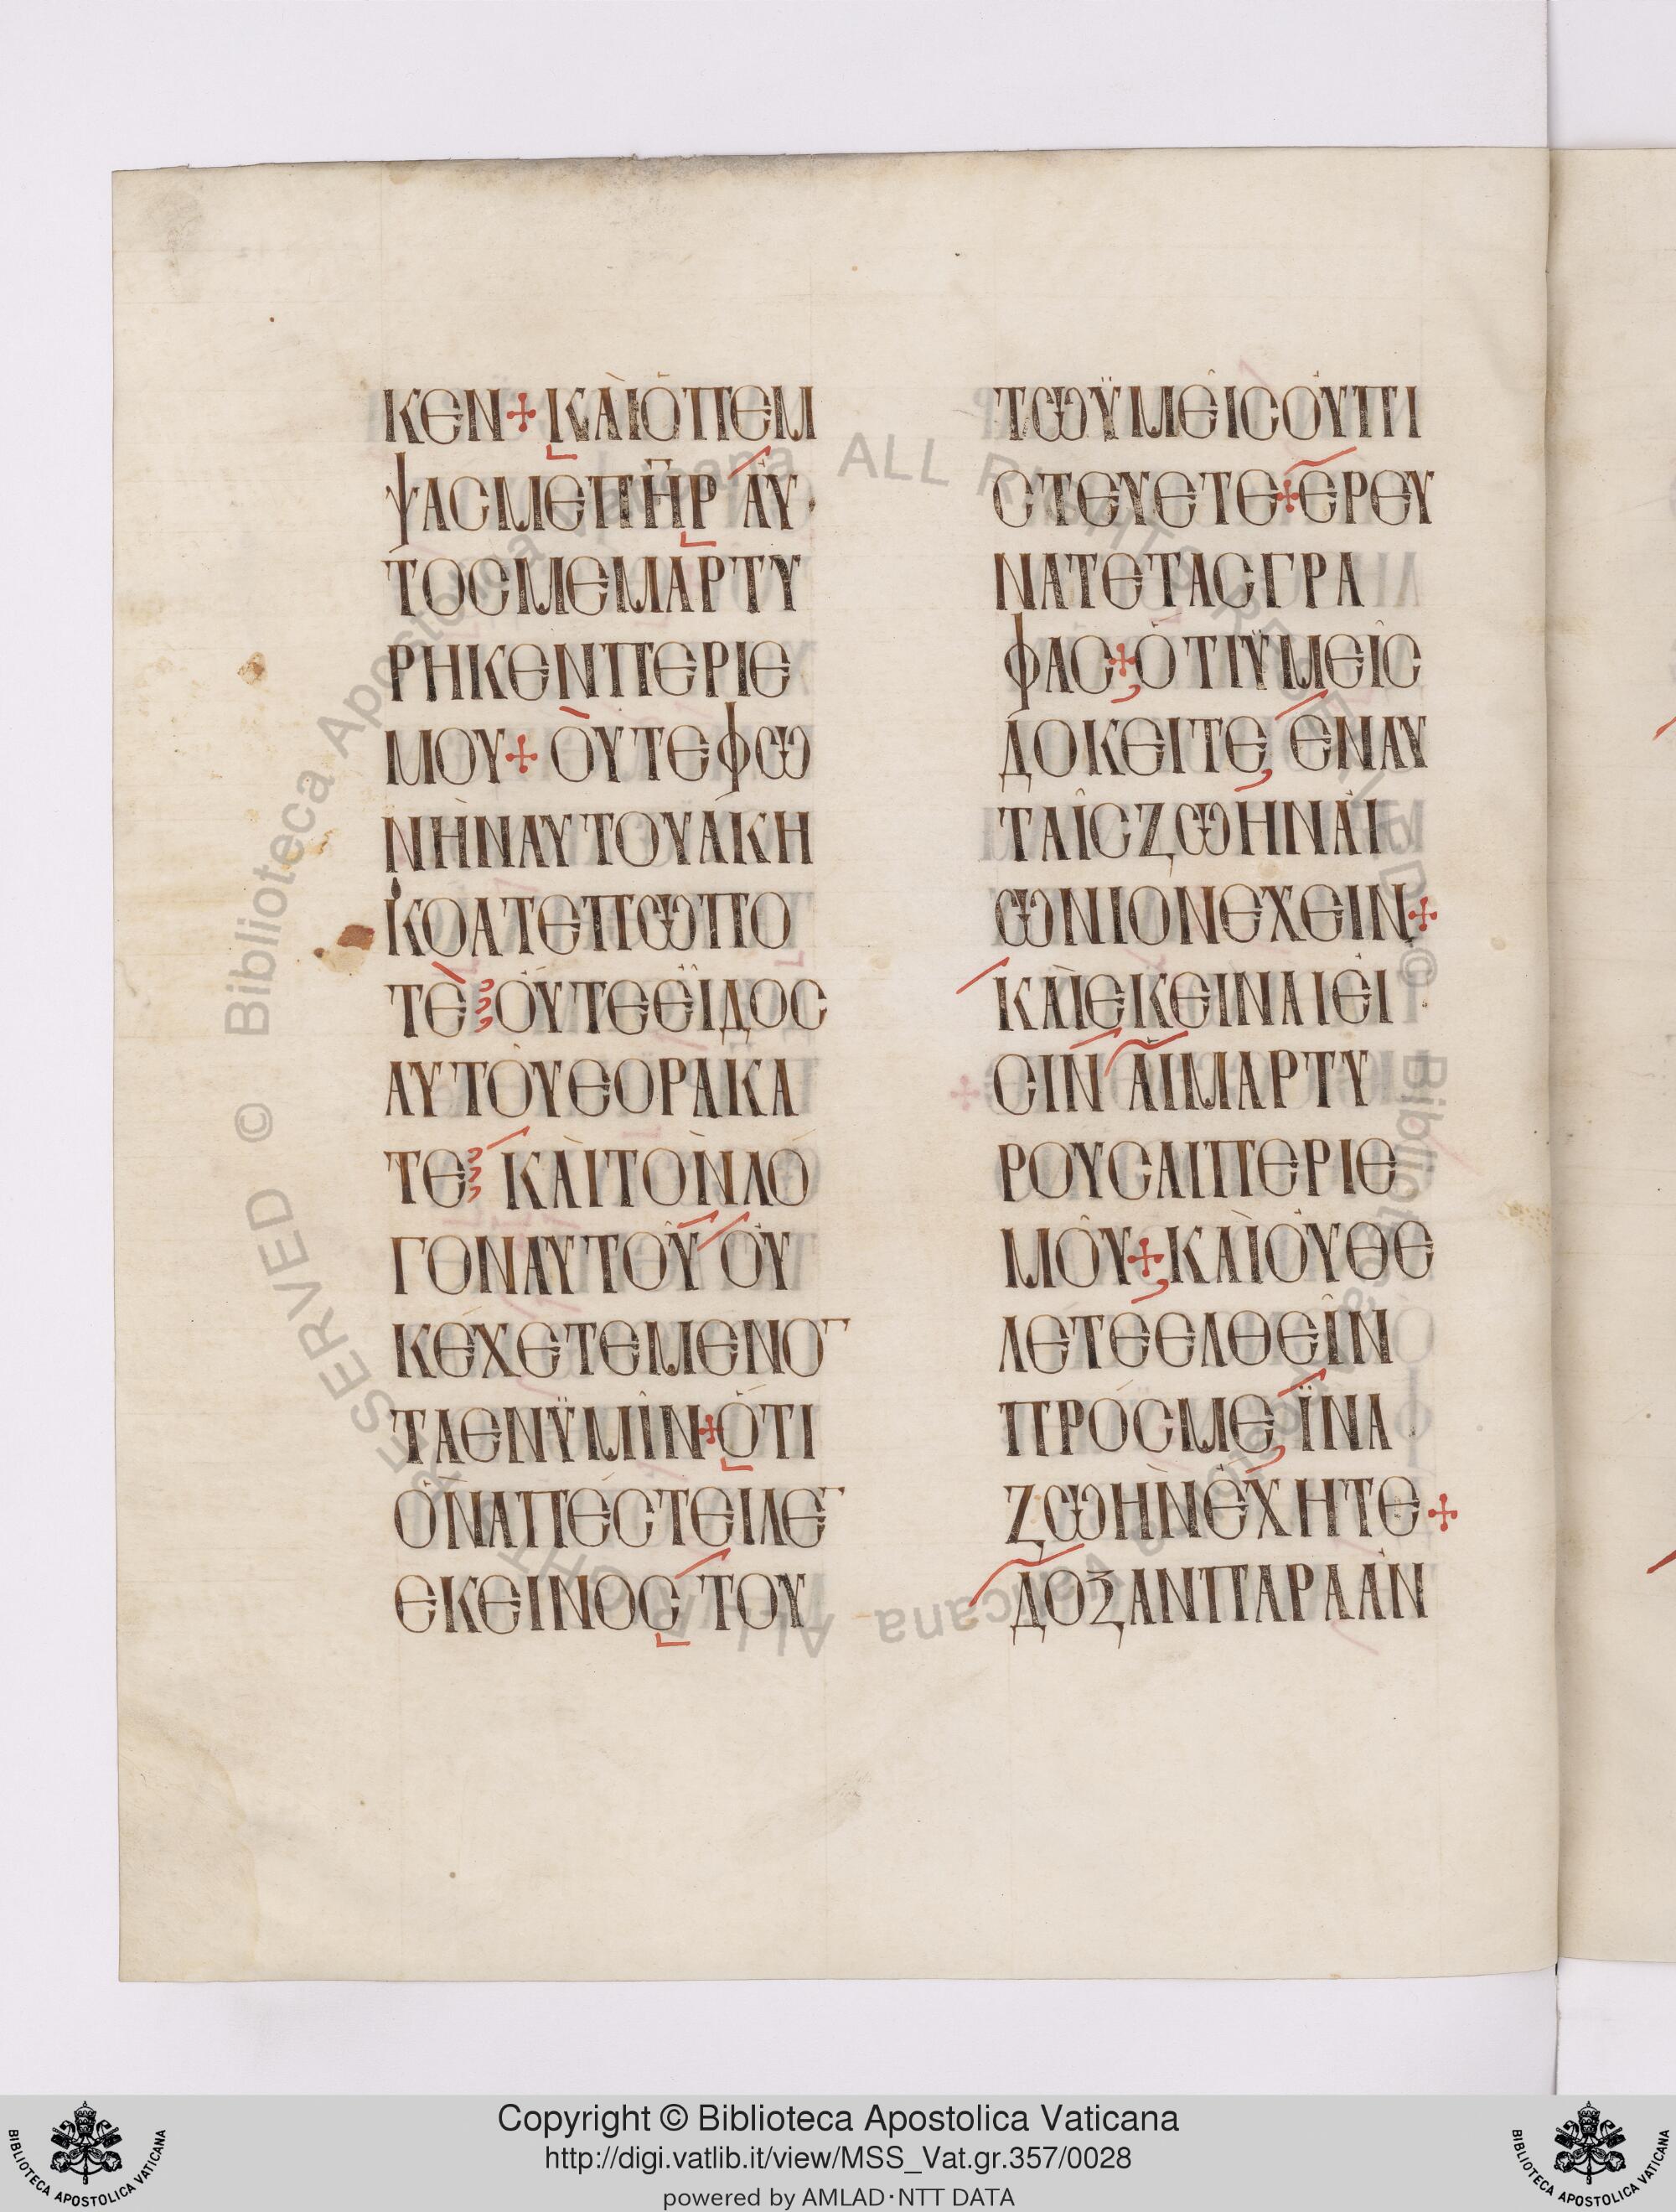 ΚΕΝ + ΚΑῚὉΠΕΜ
ΨΑCΜΕΠΗ̅Ρ ΑΥ
ΤΟCΜΕΜΑΡΤΥ
ΡΗΚΕΝΠΕΡΙΕ
ΜΟΥ + ΟΥΤΕΦΩ
ΝῊΝΑΥΤΟΥΑΚΗ
ΚΟΑΤΕΠΩΠΟ
ΤΕ ΟΥΤΕΕΙΔΟC
ΑΥΤΟΥΕΟΡΑΚΑ
ΤΕ ΚΑῚΤΟΝΛΟ
ΓΟΝΑΥΤΟΥ ΟΥ
ΚΕΧΕΤΕΜΕΝΟ¯
ΤΑΕΝΫΜΙΝ + ὉΤΙ
ὉΝΑΠΕCΤΕΙΛΕ¯
ΕΚΕΙΝΟC ΤΟΥ
ΤΩΫΜΕΙCΟΥΠΙ
CΤΕΥΕΤΕ + ΕΡΕΥ
ΝΑΤΕΤΑCΓΡΑ
ΦΑC + ὉΤΙΫΜΕΙC
ΔΟΚΕΙΤΕ ΕΝΑΥ
ΤΑΙCΖΩΗΝΑΙ
ΩΝΙΟΝΕΧΕΙΝ +
ΚΑῚΕΚΕΙΝΑΙΕΙ
CΙΝ ΑΙΜΑΡΤΥ
ΡΟΥCΑΙΠΕΡΙΕ
ΜΟΥ + ΚΑῚΟΥΘΕ
ΛΕΤΕΕΛΘΕΙΝ
ΠΡΟCΜΕ ΪΝΑ
ΖΩῊΝΕΧΗΤΕ +
ΔΟΞΑΝΠΑΡΑΑΝ
© Biblioteca Apostolica Vaticana ALL RIGHTS RESERVED © Biblioteca Apostolica Vaticana ALL RIGHTS RESERVED
Copyright © Biblioteca Apostolica Vaticana
http://digi.vatlib.it/view/MSS_Vat.gr.357/0028
powered by AMLAD·NTT DATA
BIBLIOTECA APOSTOLICA VATICANA
BIBLIOTECA APOSTOLICA VATICANA